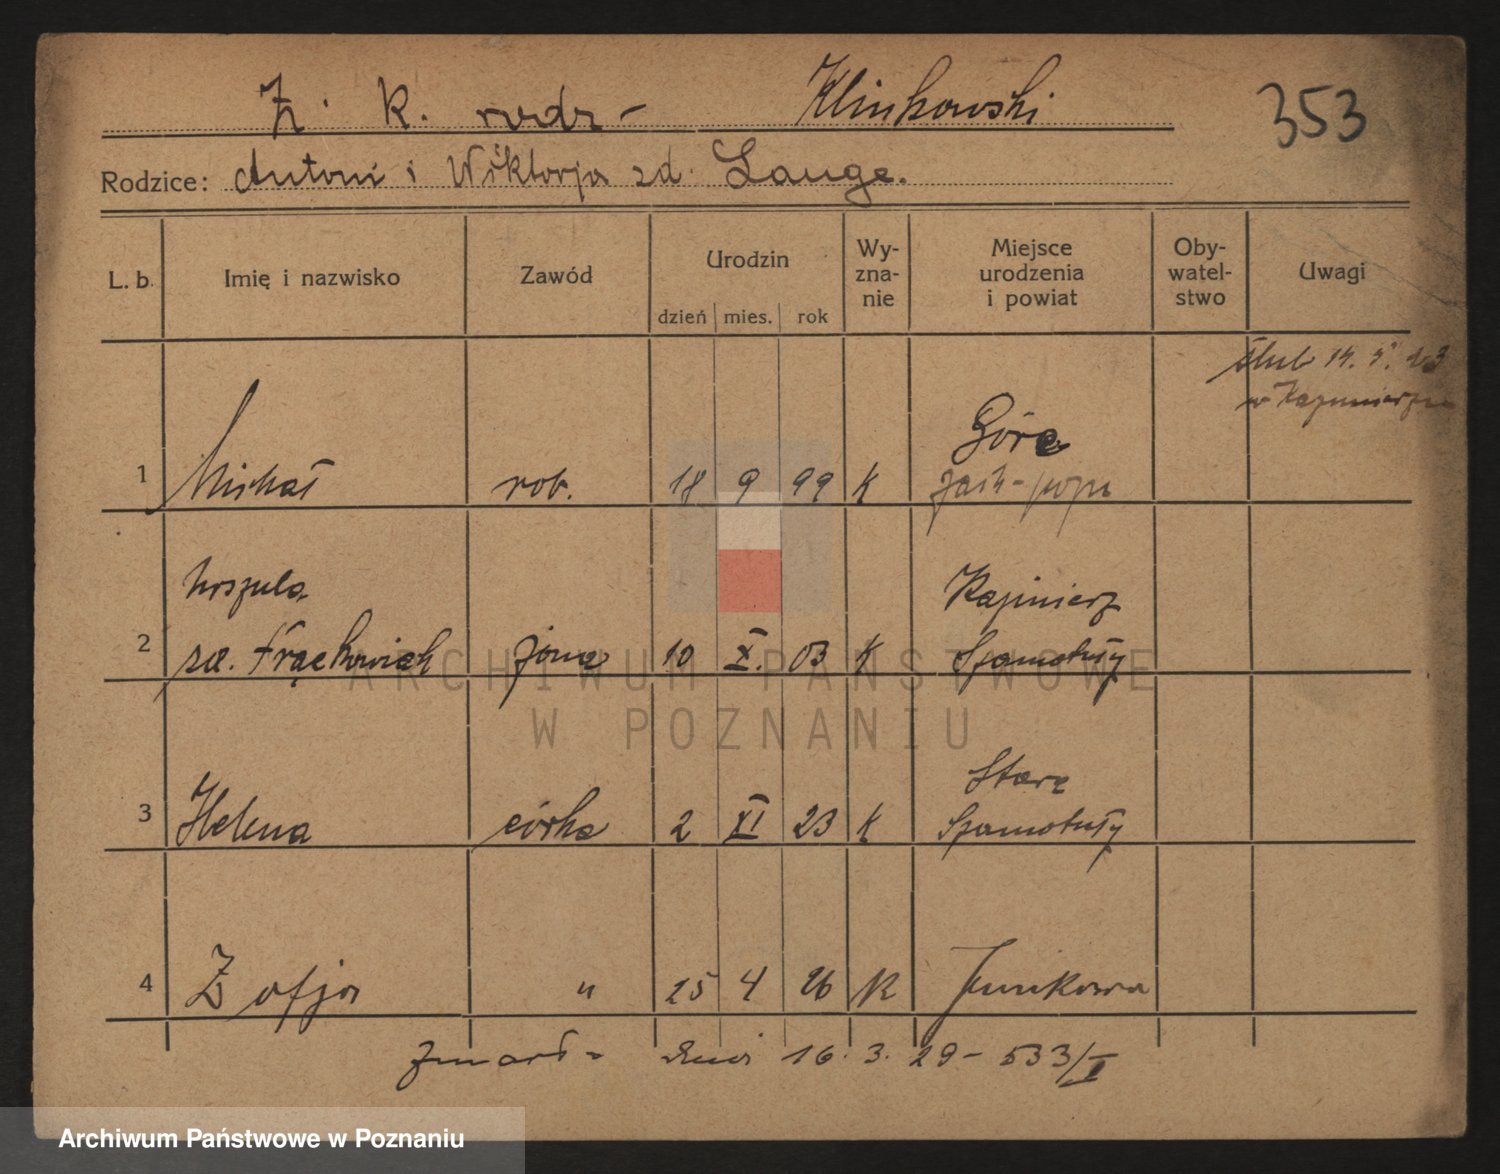 Ż. i K. rodz - Klinkowski
353
Rodzice: Antoni i Wiktorja zd. Lange.
L. b. Imię i nazwisko Zawód Urodzin Wy- Miejsce Oby- Uwagi
zna- urodzenia watel-
nie i powiat stwo
dzień mies. rok
ślub 14.
w Kazimierzu
Góra
1 Michał rob. 18 9 99 K
Urszula Kazimierz
2 zd. Frąckowiak żona 10 X. 03 K Szamotuły
ARCHIWUM PAŃSTWOWE
W POZNANIU
Stare
3 Helena córka 2 XI 23 K Szamotuły
4 Zofja " 25 4 26 K Junikowo
zmarł - dnia 16. 3. 29 - 533/I
Archiwum Państwowe w Poznaniu